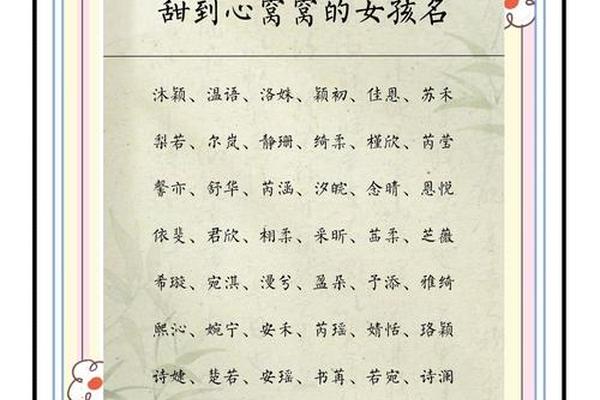 甜到心窝窝的女孩名
沐颖、温语、洛姝、颖初、佳恩、苏禾
梨若、尔岚、静珊、绮柔、槿欣、芮莹
馨亦、舒华、芮涵、汐皖、念晴、恩悦
依斐、君欣、栩柔、采昕、茜柔、芝薇
希璇、宛淇、漫兮、盈朵、予添、雅绮
熙沁、婉宁、安禾、芮瑶、婧恬、珞颖
诗婕、楚若、安瑶、书苒、若宛、诗澜